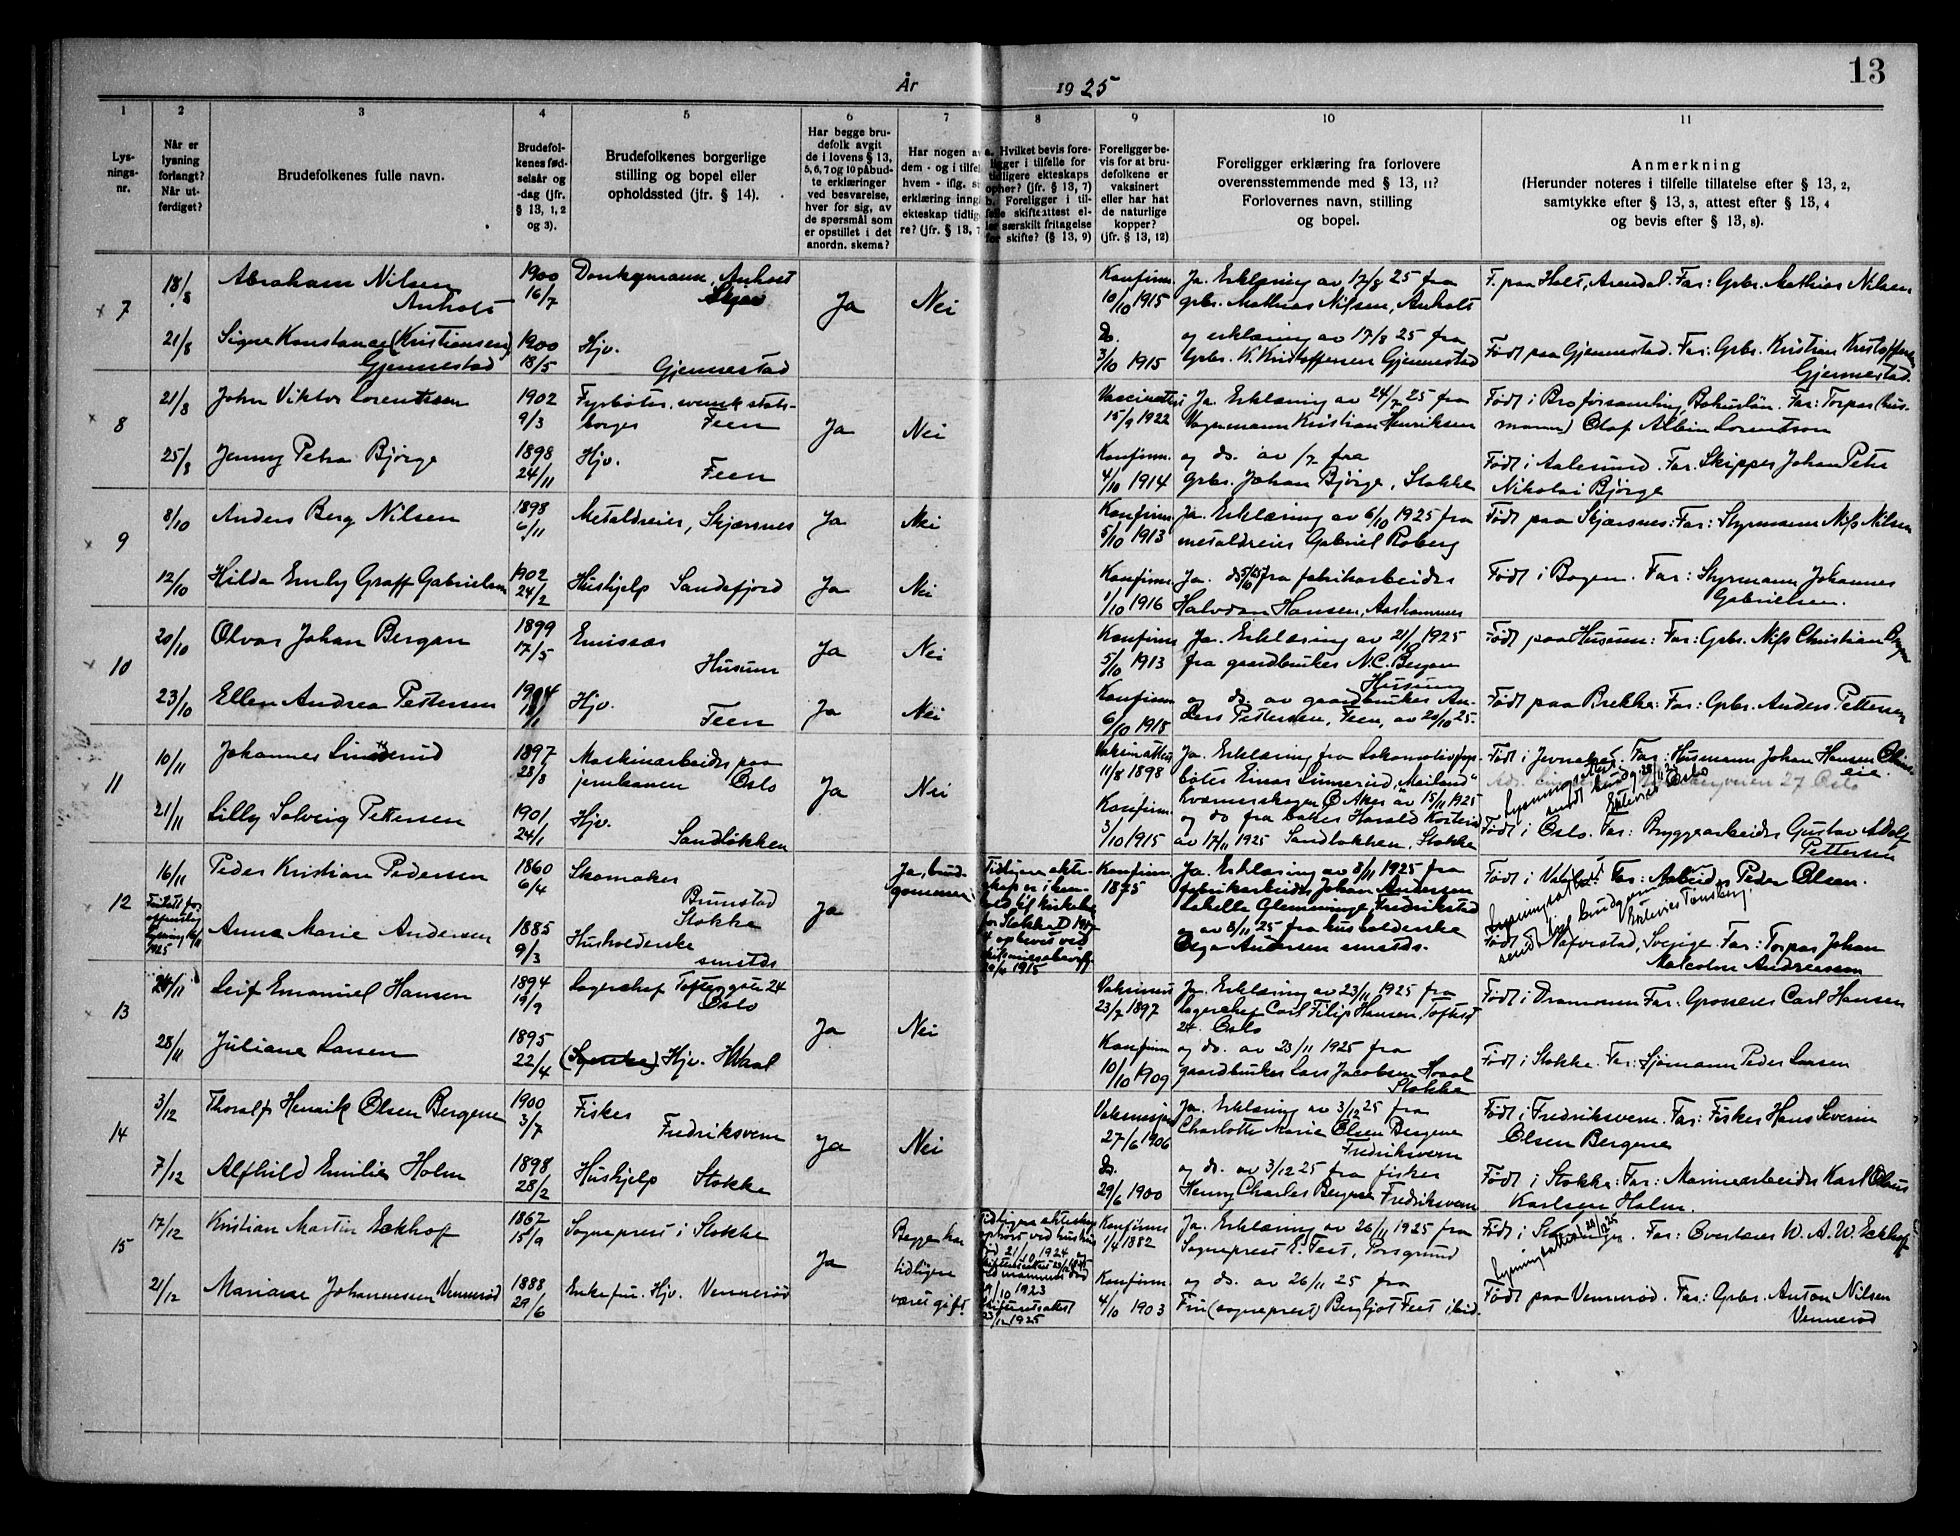 13
År 1925
1 2 3 4 5 6 7 8 9 10 11
Lys-
nings-
nr.
Når er
lysning
forlangt?
Når ut-
ferdiget?
Brudefolkenes fulle navn.
Brudefol-
kenes fød-
selsår og
-dag (jfr.
§ 13, 1, 2
og 3).
Brudefolkenes borgerlige
stilling og bopel eller
opholdssted (jfr. § 14).
Har begge bru-
defolk avgit
de i lovens § 13,
5, 6, 7 og 10 påbud-
te erklæringer
ved besvarelse,
hver for sig, av
de spørsmål som
er opstillet i det
anordn. skema?
Har nogen av
dem - og i tilfel
hvem - iflg. si
erklæring inng
ekteskap tidlig
re? (jfr. § 13, 7
a. Hvilket bevis fore-
ligger i tilfelle for
tidligere ekteskaps
ophør? (jfr. § 13, 7)
b. Foreligger i til-
felle skifteattest el-
ler særskilt fritagelse
for skifte? (§ 13, 9)
Foreligger be-
vis for at bru-
defolkene er
vaksinert
eller har hat
de naturlige
kopper?
(jfr. § 13, 12)
Foreligger erklæring fra forlovere
overensstemmende med § 13, 11?
Forlovernes navn, stilling
og bopel.
Anmerkning
(Herunder noteres i tilfelle tillatelse efter § 13, 2,
samtykke efter § 13, 3, attest efter § 13, 4
og bevis efter § 13, 8).
x 7
18/8
Abraham Nilsen
Anholt
1900
16/7
Donkeymann, Anholt
Ja
Nei
Konfirm.
10/10 1915
Ja. Erklæring av 17/8 25 fra
grbr. Mathias Nilsen, Anholt
F. paa Holt, Arendal. Far: Grbr. Mathias Nilsen
21/8
Signe Konstance (Kristiansen)
Gjennestad
1900
18/5
Hjv.
Gjennestad
Do.
3/10 1915
og erklæring av 17/8 25 fra
Grbr. K. Kristoffersen Gjennestad
Født paa Gjennestad. Far: Grbr. Kristian Kristoffersen
Gjennestad.
x 8
21/8
John Viktor Lorentzson
1902
9/3
Fyrbøter, svensk stats-
borger Feen
Ja
Nei
15/9 1922
Ja. Erklæring av 24/7 25 fra
Vognmann Kristian Henriksen
Født i Broforsamling, Bohuslän. Far: Torpar (hus-
mann) Olof Albin Lorentson
25/8
Jenny Petra Bjørge
1898
24/11
Hjv.
Feen
Konfirm.
4/10 1914
og do. av /7 fra
grbr. Johan Bjørge, Stokke
Født i Aalesund. Far. Skipper Johan Peter
Nikolai Bjørge
x 9
8/10
Anders Berg Nilsen
1898
6/11
Metaldreier, Skjærsnes
Ja
Nei
Konfirm.
5/10 1913
Ja. Erklæring av 6/10 1925 fra
metaldreier Gabriel Roberg
Født paa Skjærsnes: Far: Styrmann Nils Nilsen
12/10
Hilda Emly Graff Gabrielsen
1902
24/2
Hushjelp Sandefjord
Ja
Nei
Konfirm.
1/10 1916
Ja. do 5/10 25 fra fabrikarbeider
Halvdan Hansen, Aashammer
Født i Bogen. Far: Styrmann Johannes
Gabrielsen.
10
20/10
Olvar Johan Bergan
1899
17/5
Emissær
Husum
Ja
Nei
Konfirm
5/10 1913
Ja. Erklæring av 21/10 1925
fra gaardbruker N.C. Bergan
Husum
Født paa Husum: Far: Grbr. Nils Christian Bergan
23/10
Ellen Andrea Pettersen
1904
Hjv.
Feen
Ja
Nei
Konfirm
6/10 1918
og do. av gaardbruker An-
ders Pettersen, Feen, av 20/10 25.
Født paa Brekke: Far: Grbr. Anders Pettersen
11
10/11
Johannes Linnerud
1897
23/8
Maskinarbeider paa
jernbanen Oslo
Ja
Nei
11/8 1898
Ja. Erklæring fra Lokomotivfyr-
bøter Einar Linnerud, "Meiland"
Kværnerskogen Ø. Aker av 15/11 1925
Født i Jevnaker. Far: Husmann Johan Hansen
eie.
27 Oslo
21/11
Lilly Solveig Pettersen
1901
24/1
Hjv.
Sandløkken
Konfirm.
3/10 1915
og do fra baker Harald
av 17/11 1925 Sandløkken, Stokke
Født i Oslo. Far: Bryggearbeider Gustav Adolf
Pettersen
12
16/11
Peder Kristian Pedersen
1860
6/4
Skomaker
Brunstad
Stokke
Ja
Ja, brud-
gommen
Tidligere ekte-
skap er i hen-
hold til kirkebok
for Stokke
Konfirm.
1875
Ja. Erklæring av 8/11 1925 fra
fabrikarbeider Johan Andersen
Labella Glemminge, Fredrikstad
Far: Arbeider Peder Olsen.
1925
Anna Marie Andersen
1885
9/3
Husholderske
smstds
og av 8/11 25 fra husholderske
Olga Andersen smstds.
Født i Nafverstad, Sverige. Far: Torpar Johan
Malcolm Andreasson
13
Leif Emanuel Hansen
1894
19/2
Lagerchef Toftesgate 24
Oslo
Ja
Nei
23/7 1897
Ja. Erklæring av 23/11 1925 fra
Lagerchef Carl Filip Hansen, Toftesgt
24. Oslo
Født i Drammen Far: Grosserer Carl Hansen
28/11
Juliane Larsen
1895
22/4
Hjv. Hvaal
Konfirm
10/10 1909
og do. av 23/11 1925 fra
gaardbruker Lars Jacobsen Hvaal
Stokke
Født i Stokke. Far: Sjømann Peder Larsen
14
3/12
Thoralf Henrik Olsen Bergene
1900
3/7
Fisker
Fredriksvern
Ja
Nei
27/6 1906
Ja. Erklæring av 3/12 25 fra
Charlotte Marie Olsen Bergene
Fredriksvern
Født i Fredriksvern. Far: Fisker Hans Severin
Olsen Bergene
7/12
Alfhild Emilie Holm
1898
28/2
Hushjelp Stokke
Do.
29/6 1900
og do. av 3/12 25 fra fisker
Henry Charles Bergene Fredriksvern
Født i Stokke: Far: Marinearbeider Karl Olaus
Karlsen Holm.
15
17/12
Kristian Martin Eckhoff
1867
15/9
Sogneprest i Stokke
Ja
Begge har
tidligere
været gift.
Tidligere ekteskap
ophørt ved hustrus
død 21/10 1924
Konfirm
1/4 1882
Ja. Erklæring av 26/11 1925 fra
Sogneprest E. Feet, Porsgrund
Far: Overlærer W. A. W. Eckhoff
21/12
Mariane Johannessen Vennerød
1888
29/6
Enkefru. Hjv. Vennerød
23/12 1925
Konfirm.
4/10 1903
og do. av 26/11 25 fra
Fru (sogneprest) Bergljot Feet ibid.
Født paa Vennerød. Far: Grbr. Anton Nilsen
Vennerød